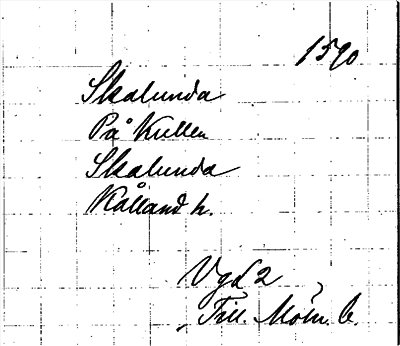 1590
Skalunda
På Kullen
Skalunda
Kålland h.
Vgd 2
Till